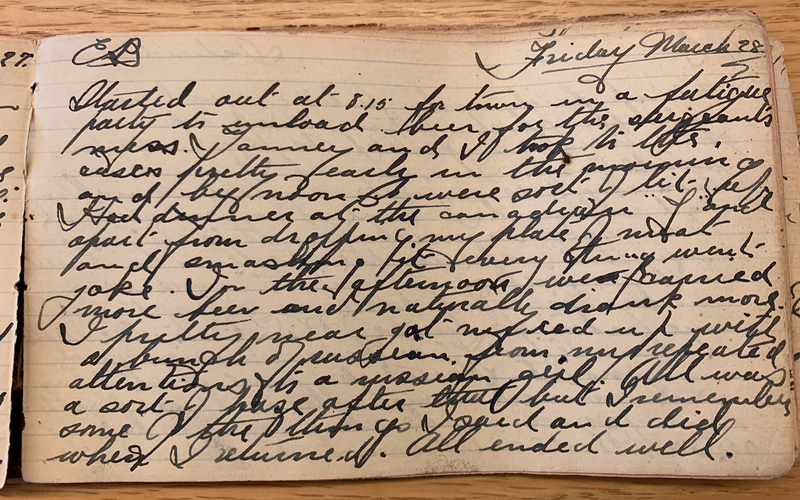 27.
Friday March 28
Started out at 8.15 for town in a fatigue
party to unload beer for the sergeants
mess. Tanner and I took to the
cases pretty early in the morning
and by noon we were sort of lit up.
Had dinner at the Canadian "Y" and
apart from dropping my plate of meat
and smashing it every thing went
jake. In the afternoon we carried
more beer and naturally drank more.
I pretty near got mixed up with
a bunch of russian from my repeated
attentions to a russian girl. All was
a sort of haze after that but I remember
some of the things I said and did
when I returned. All ended well.